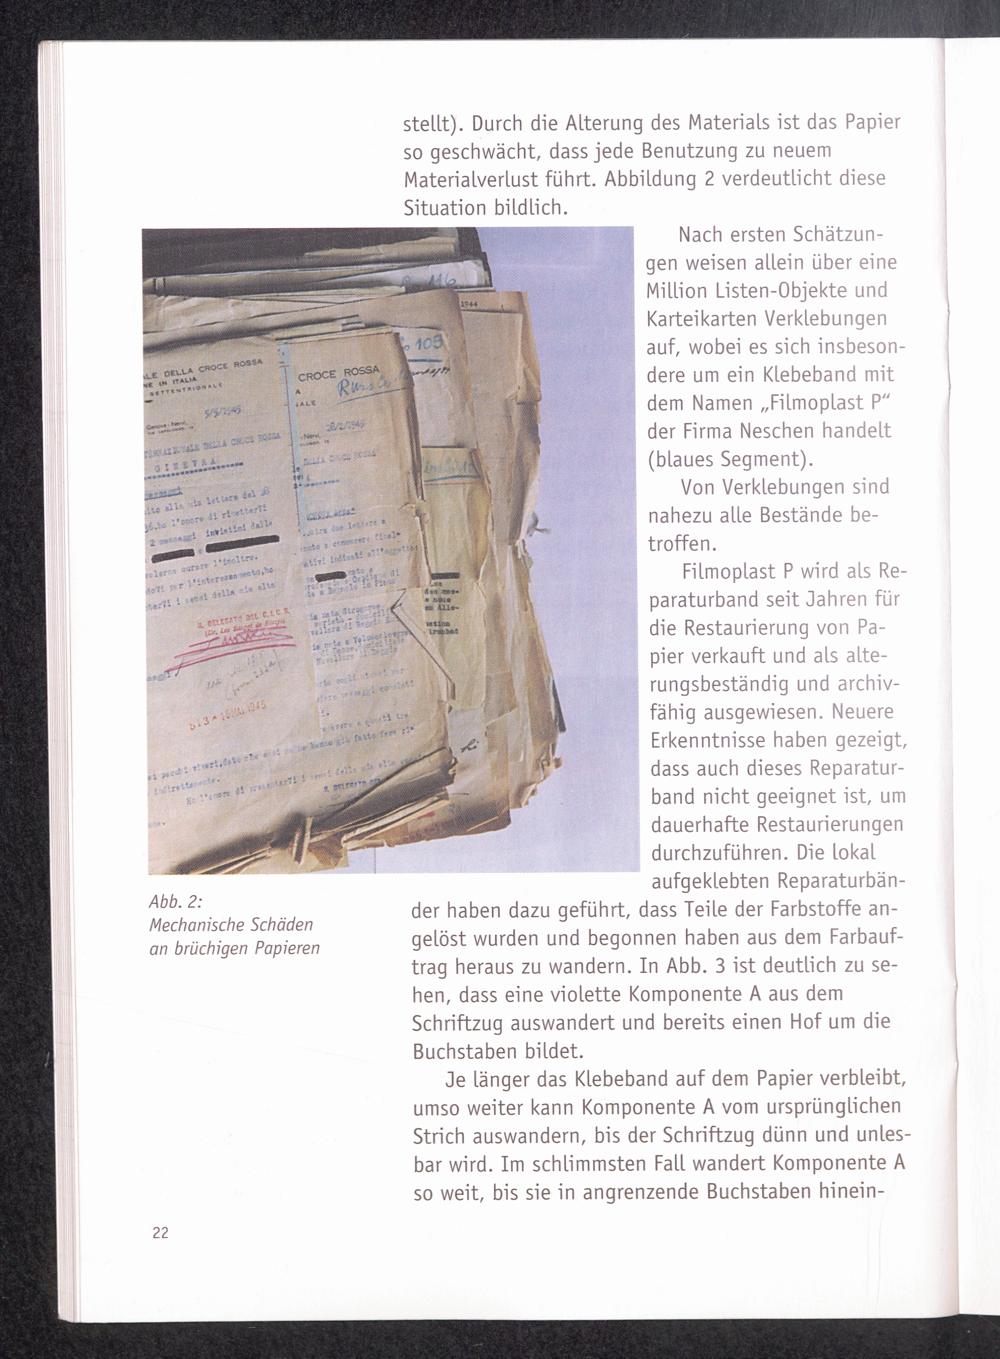 stellt). Durch die Alterung des Materials ist das Papier
so geschwächt, dass jede Benutzung zu neuem
Materialverlust führt. Abbildung 2 verdeutlicht diese
Situation bildlich.
Nach ersten Schätzun-
gen weisen allein über eine
Million Listen-Objekte und
Karteikarten Verklebungen
auf, wobei es sich insbeson-
dere um ein Klebeband mit
dem Namen „Filmoplast P“
der Firma Neschen handelt
(blaues Segment).
Von Verklebungen sind
nahezu alle Bestände be-
troffen.
Filmoplast P wird als Re-
paraturband seit Jahren für
die Restaurierung von Pa-
pier verkauft und als alte-
rungsbeständig und archiv-
fähig ausgewiesen. Neuere
Erkenntnisse haben gezeigt,
dass auch dieses Reparatur-
band nicht geeignet ist, um
dauerhafte Restaurierungen
durchzuführen. Die lokal
aufgeklebten Reparaturbän-
der haben dazu geführt, dass Teile der Farbstoffe an-
gelöst wurden und begonnen haben aus dem Farbauf-
trag heraus zu wandern. In Abb. 3 ist deutlich zu se-
hen, dass eine violette Komponente A aus dem
Schriftzug auswandert und bereits einen Hof um die
Buchstaben bildet.
Je länger das Klebeband auf dem Papier verbleibt,
umso weiter kann Komponente A vom ursprünglichen
Strich auswandern, bis der Schriftzug dünn und unles-
bar wird. Im schlimmsten Fall wandert Komponente A
so weit, bis sie in angrenzende Buchstaben hinein-
1944
105
ALE DELLA CROCE ROSSA
NE IN ITALIA
SETTENTRIONALE
5/5/1945
DELLA CROCE ROSSA
GINEVRA
ito alla mia lettera del 28
ho l'onore di rimetterVi
2 messaggi inviatimi dalla
volerne curare l'inoltro.
per l'interessamento, ho
i sensi della mia alta
IL DELEGATO DEL C.I.C.R.
CROCE ROSSA
A
IALE
28/2/1945
DELLA CROCE ROSSA
due lettere a
Abb. 2:
Mechanische Schäden
an brüchigen Papieren
22